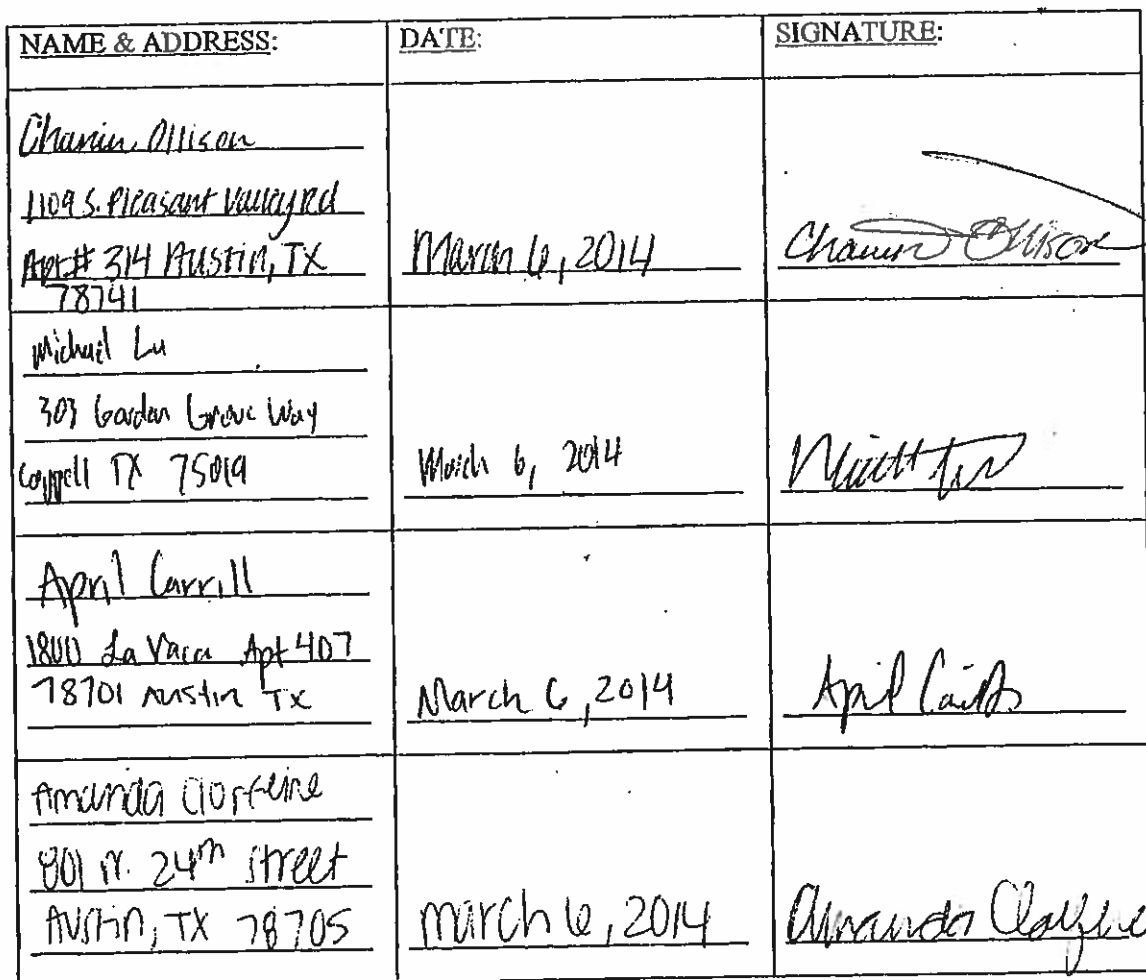 NAME & ADDRESS: DATE: SIGNATURE:
Chanin Ollison
1109 S. Pleasant Valley Rd
Apt# 314 Austin, TX March 6, 2014 Chanin Ollison
78741
Michael Lu
303 Garden Grove Way
Coppell TX 75019 March 6, 2014
April Carrill
1800 La Vaca Apt 407
78701 Austin TX March 6, 2014 April
Amanda Clorfeine
801 W. 24th Street
Austin, TX 78705 march 6, 2014 Amanda